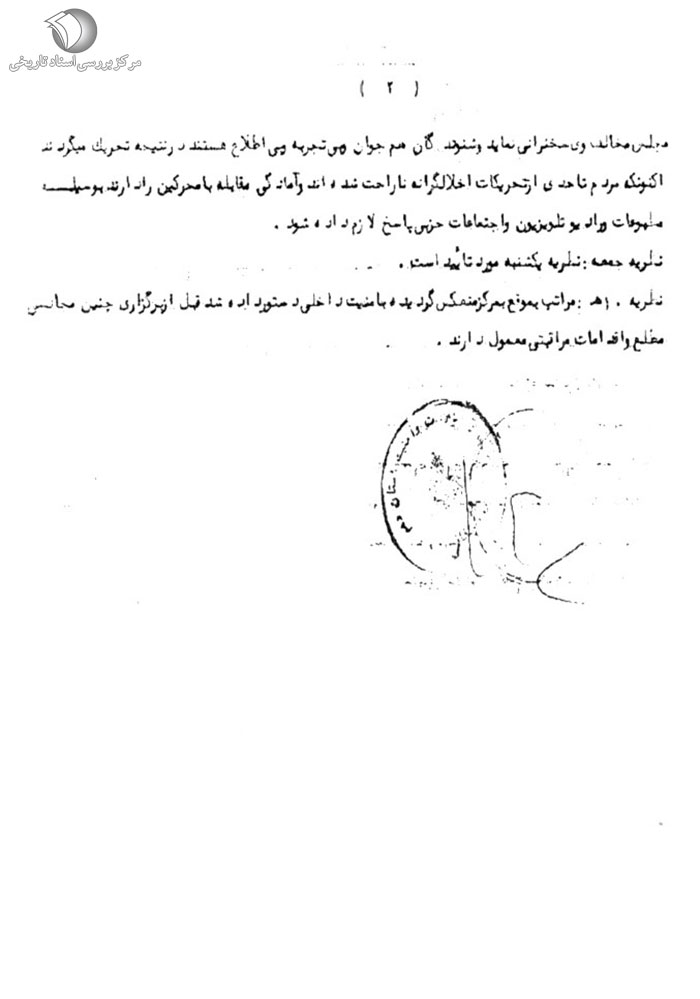 مرکز بررسی اسناد تاریخی
( ۲ )
مجلس مخالف وی سخنرانی نماید و شنوندگان هم جوان و بی تجربه و بی اطلاع هستند در نتیجه تحریک میگردند
اکنونکه مردم تا حدی از تحریکات اخلالگرانه ناراحت شده اند و آمادگی مقابله با محرکین را دارند بوسیله
مطبوعات و رادیو تلویزیون و اجتماعات حزبی پاسخ لازم داده شود .
نظریه جمعه : نظریه یکشنبه مورد تأیید است .
نظریه ۱۰ هـ : مراتب بموقع بمرکز منعکس گردیده با منیت داخلی دستور داده شد قبل از برگزاری چنین مجالس
مطلع و اقدامات مراقبتی معمول دارند .